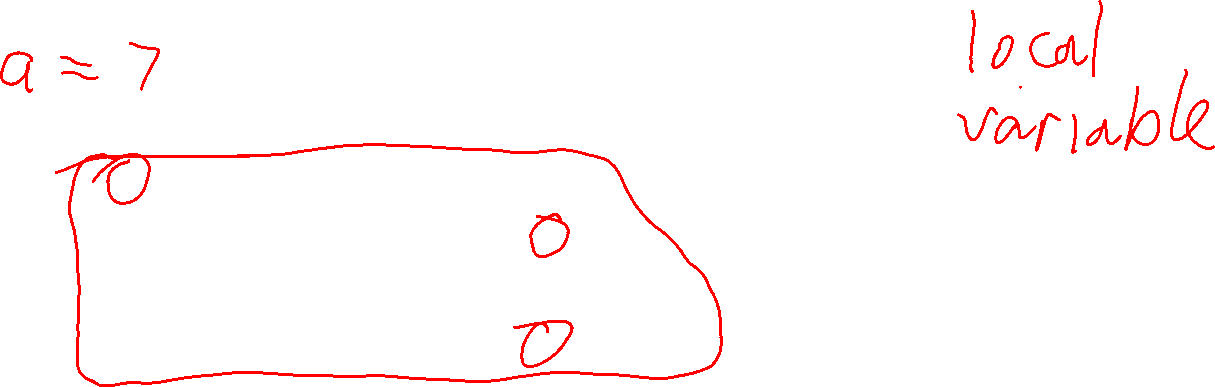 a = 7
local
variable